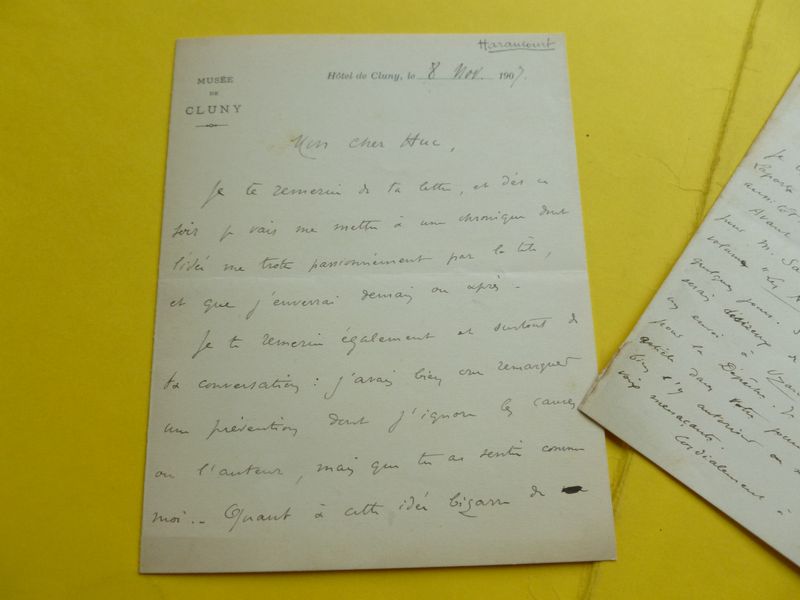 Haraucourt
MUSÉE
DE
CLUNY
Hôtel de Cluny, le 8 Nov. 1907.
Mon cher Huc,
Je te remercie de ta lettre, et dès ce
soir je vais me mettre à une chronique dont
l'idée me trotte passionnément par la tête,
et que j'enverrai demain ou après.
Je te remercie également et surtout de
ta conversation : j'avais bien cru remarquer
une prévention dont j'ignore les causes
ou l'auteur, mais que tu as sentie comme
moi.. Quant à cette idée bizarre de
Je
aussitôt
Avant
pour M. Sa
volume "Les A
quelques jours.
serais désireux de
un envoi à
pour la Dépêche. Je
article dans votre
bien l'y autoriser ou
voix menaçante.
Cordialement à